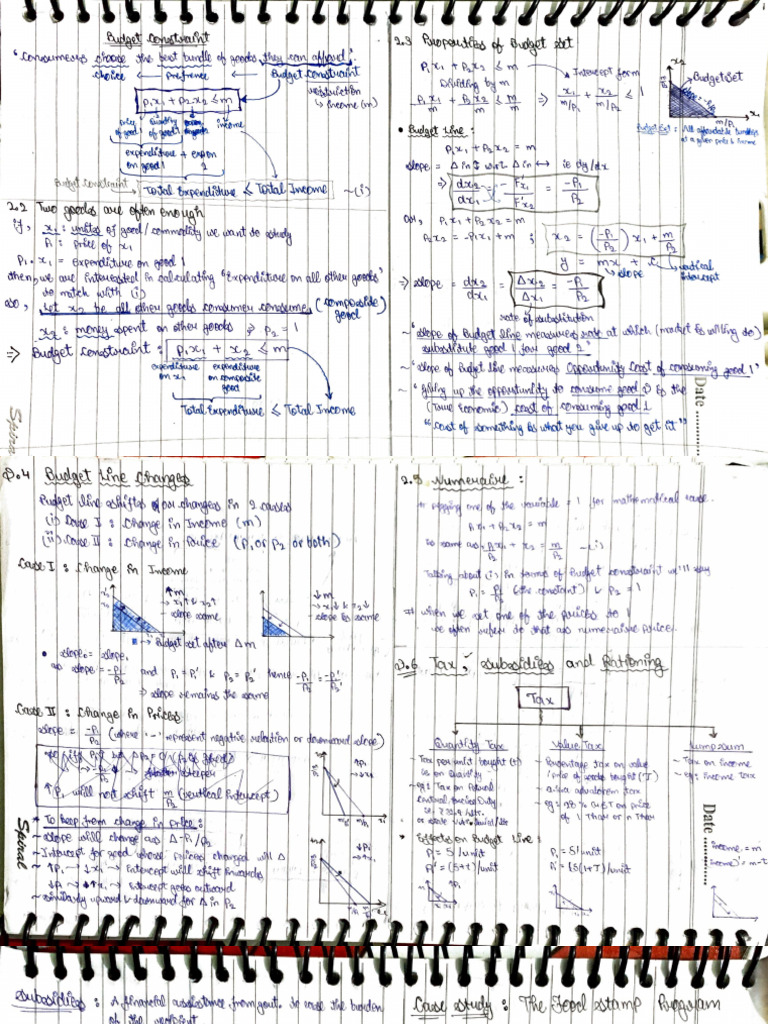 Budget Constraint
"Consumers choose the best bundle of goods they can afford."
choice ← Preference ← Budget constraint
↳ income (m)
p₁x₁ + p₂x₂ ≤ m
price of good 1
income
expenditure on good 1 + expen 2
Budget constraint
Total Expenditure ≤ Total Income ~(i)
2.2 Two goods are often enough
if, x₁ : units of good/commodity we want to study
P₁ : price of x₁
P₁ · x₁ = expenditure on good 1
then, we are interested in calculating "Expenditure on all other goods"
to match with (i)
so, let x₂ be all other goods consumer consume (composite good)
x₂ : money spent on other goods ⇒ P₂ = 1
⇒ Budget constraint : p₁x₁ + x₂ ≤ m
expenditure on x₁ expenditure on composite good
Total Expenditure ≤ Total Income
Spiral
2.3 Properties of Budget set
P₁x₁ + P₂x₂ ≤ m
Dividing by m
Intercept form
P₁x₁/m + P₂x₂/m ≤ m/m ⇒ x₁/(m/P₁) + x₂/(m/P₂) ≤ 1
x₂
Budget set
x₁
m/P₁
Budget Set = All affordable bundles at a given price & income
• Budget Line :
P₁x₁ + P₂x₂ = m
slope = Δ in ↕ w.r.t Δ in ↔ ie dy/dx
⇒ dx₂/dx₁ = -F'x₁/F'x₂ = -P₁/P₂
or, P₁x₁ + P₂x₂ = m
P₂x₂ = -P₁x₁ + m ; x₂ = (-P₁/P₂) x₁ + m/P₂
y = mx + c
slope
vertical intercept
⇒ slope = dx₂/dx₁ = Δx₂/Δx₁ = -P₁/P₂
rate of substitution
~ "slope of Budget line measures rate at which (market is willing to)
substitute good 1 for good 2"
~ "slope of Budget line measures Opportunity Cost of consuming good 1"
~ "Giving up the opportunity to consume good 2 is the
(True Economic) cost of consuming good 1
"Cost of something is what you give up to get it"
Date
2.4 Budget Line Changes
Budget line shifts or changes in 2 cases
(i) Case I : Change in Income (m)
(ii) Case II : Change in Price (P₁ or P₂ or both)
Case I : Change in Income
↑m
→ x₁↑ & x₂↑
slope same
↓m
→ x₁↓ & x₂↓
slope is same
→ Budget set after Δm
• slope₀ = slope₁
as slope = -P₁/P₂ and P₁ = P₁' & P₂ = P₂' hence -P₁/P₂ = -P₁'/P₂'
⇒ slope remains the same
Case II : Change in Prices
slope = -P₁/P₂ (where '-' represent negative relation or downward slope)
steeper
↑P₁ will not shift m/P₂ (vertical intercept)
↑P₁
* To keep from change in price :
~ slope will change as Δ-P₁/P₂
~ Intercept for good whose prices changed will Δ
~ ↑P₁ → ↓x₁ → Intercept will shift inwards
Intercept goes outward
~ similarly upward & downward for Δ in P₂
↓P₁
Spiral
2.5 Numeraire :
one of the variable = 1 for mathematical ease.
P₁x₁ + P₂x₂ = m
so same as P₁/P₂ x₁ + x₂ = m/P₂ ~(i)
Talking about (i) in terms of Budget constraint we'll say
P₁ = P₁/P₂ (the constant) & P₂ = 1
when we set one of the prices to 1
we often refer to that as numeraire price.
2.6 Tax, Subsidies and Rationing
Tax
Quantity Tax
~ Tax per unit bought (t)
is on Quantity
~ eg: Tax on Petrol
Value Tax
~ Percentage tax on value
/price of goods bought (T)
~ a.k.a advalorem tax
~ eg : 28% GST on price
of 1 Thar or n Thar
Lumpsum
~ Tax on income
~ eg: income tax
* Effects on Budget Line :
P₁ = 5/unit
P₁' = (5+t)/unit
P₁ = 5/unit
P₁' = (5(1+T)/unit
Income = m
income' = m-t
Date
Subsidies : A financial assistance from govt. to ease the burden
of the recipient
Case study : The Food Stamp Program